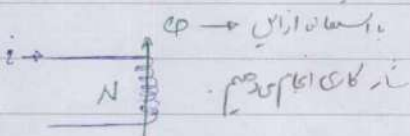 φ → با استفاده از این
i →
شار کاری انجام می‌دهیم.
N